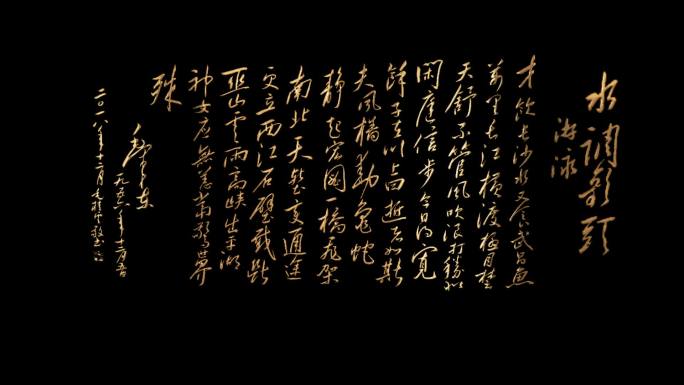 水調歌頭
游泳
才飲長沙水又食武昌魚
萬里長江橫渡極目楚
天舒不管風吹浪打勝似
閑庭信步今日得寬
餘子在川上曰逝者如斯
夫風檣動龜蛇
静起宏圖一橋飛架
南北天塹變通途
更立西江石壁截斷
巫山雲雨高峽出平湖
神女應無恙當驚世界
殊
毛澤東
一九五六年十二月五日
二〇一八年十二月